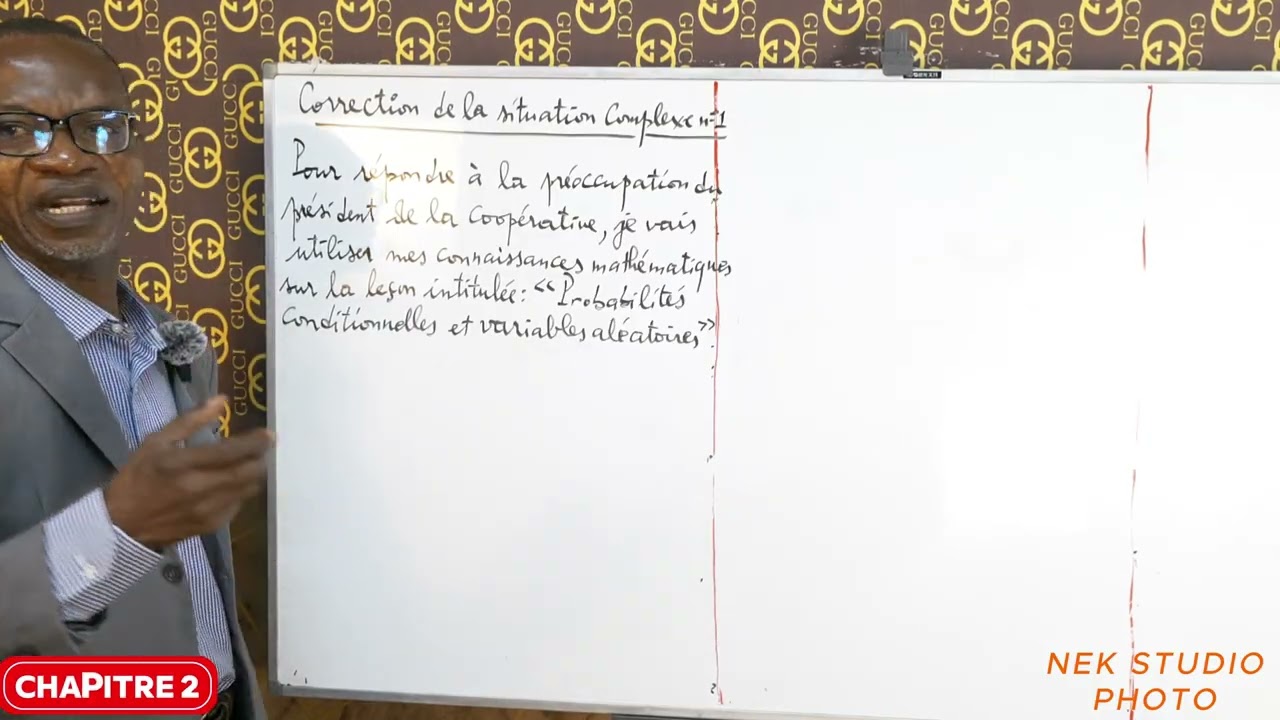 Correction de la situation Complexe n°1
Pour répondre à la préoccupation du
président de la coopérative, je vais
utiliser mes connaissances mathématiques
sur la leçon intitulée: "Probabilités
Conditionnelles et variables aléatoires".
CHAPITRE 2
NEK STUDIO
PHOTO
GUCCI